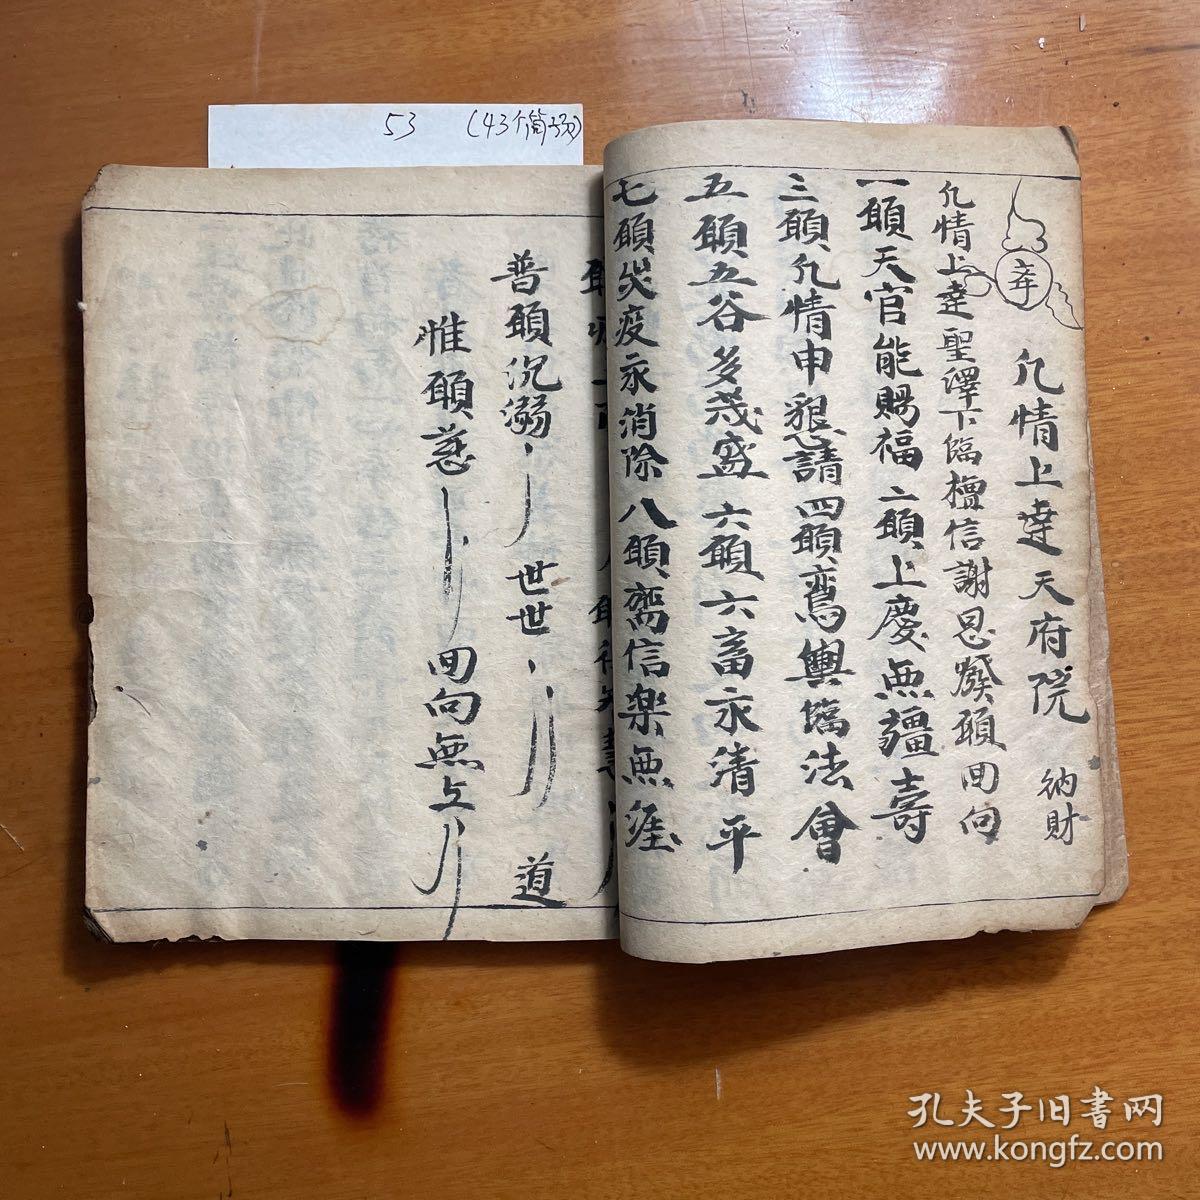 53 (43个筒子页)
奔
凡情上達天府院 納財
凡情上達聖澤下臨檀信謝恩發願回向
一願天官能賜福二願上慶無疆壽
三願凡情申懇請四願鸞輿臨法會
五願五谷多茂盛六願六畜永清平
七願災疫永消除八願齋信楽無涯
普願沉溺 世世 道
惟願慈 回向無上
孔夫子旧書网
www.kongfz.com